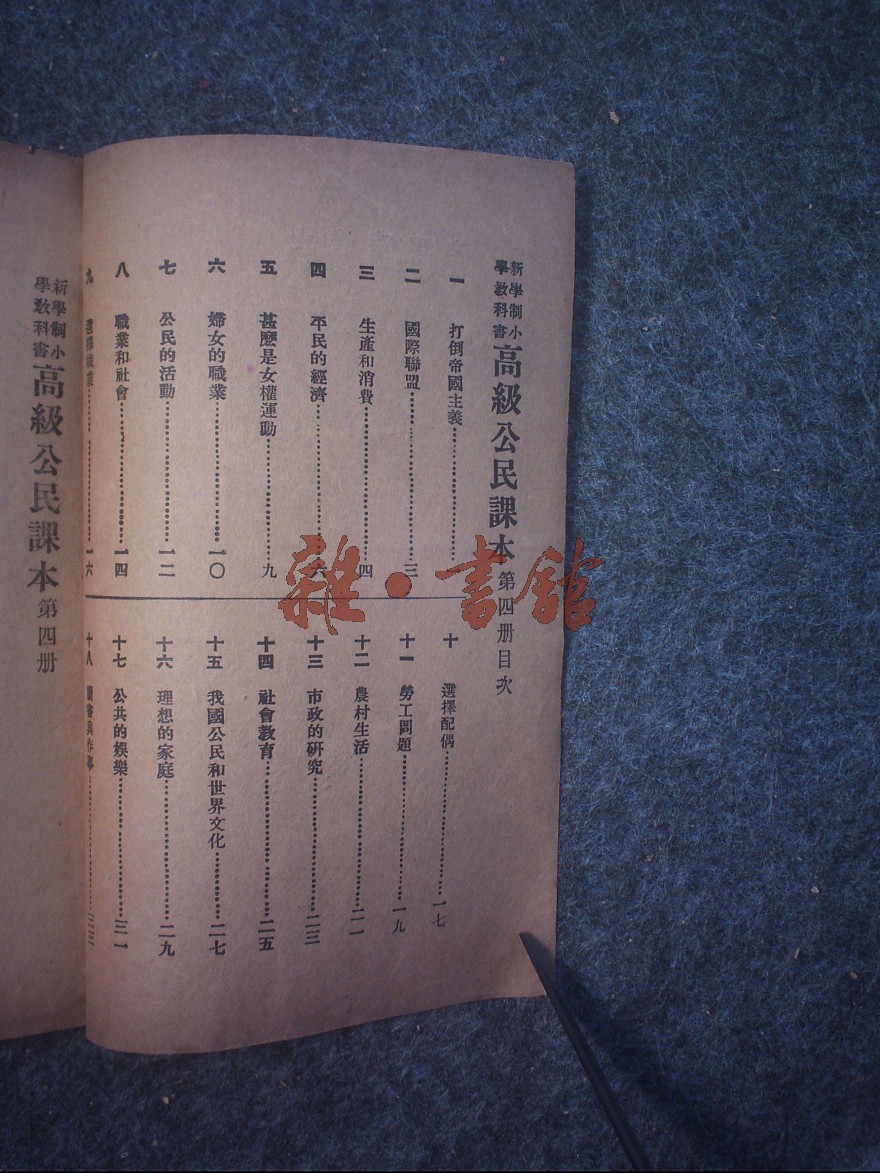 新學制小
學教科書
高級公民課本 第四册目次
一 打倒帝國主義 一
二 國際聯盟 三
三 生產和消費 四
四 平民的經濟 六
五 甚麽是女權運動 九
六 婦女的職業 一〇
七 公民的活動 一二
八 職業和社會 一四
九 選擇職業 一六
十 選擇配偶 一七
十一 勞工問題 一九
十二 農村生活 二一
十三 市政的研究 二三
十四 社會教育 二五
十五 我國公民和世界文化 二七
十六 理想的家庭 二九
十七 公共的娛樂 三一
十八
新學制小
學教科書
高級公民課本 第四册
雜·書館